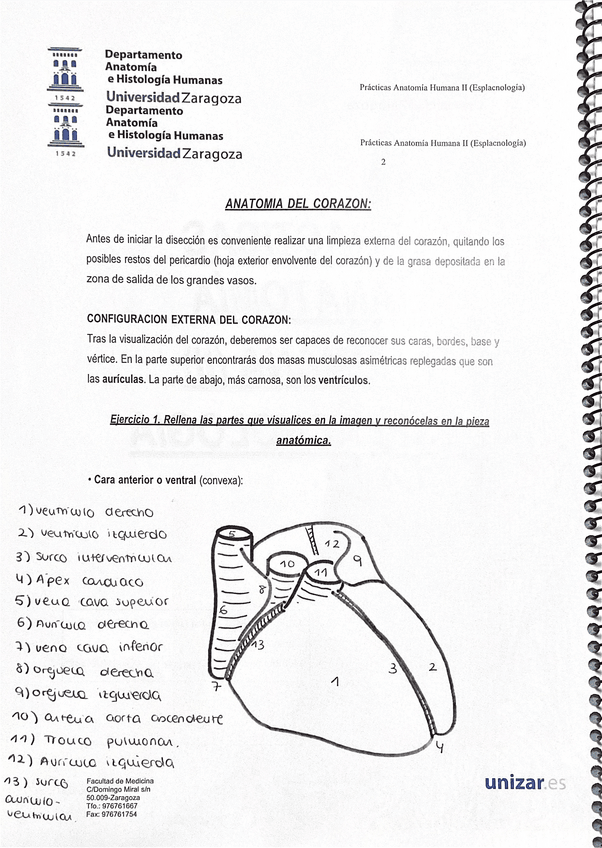 Departamento
Anatomía
e Histología Humanas
1542
Universidad Zaragoza
Prácticas Anatomía Humana II (Esplacnología)
Departamento
Anatomía
e Histología Humanas
1542
Universidad Zaragoza
Prácticas Anatomía Humana II (Esplacnología)
2
ANATOMIA DEL CORAZON:
Antes de iniciar la disección es conveniente realizar una limpieza externa del corazón, quitando los
posibles restos del pericardio (hoja exterior envolvente del corazón) y de la grasa depositada en la
zona de salida de los grandes vasos.
CONFIGURACION EXTERNA DEL CORAZON:
Tras la visualización del corazón, deberemos ser capaces de reconocer sus caras, bordes, base y
vértice. En la parte superior encontrarás dos masas musculosas asimétricas replegadas que son
las aurículas. La parte de abajo, más carnosa, son los ventrículos.
Ejercicio 1. Rellena las partes que visualices en la imagen y reconócelas en la pieza
anatómica.
• Cara anterior o ventral (convexa):
1) ventrículo derecho
2) ventrículo izquierdo
3) surco interventricular
4) Ápex cardiaco
5) vena cava superior
6) Aurícula derecha
7) vena cava inferior
8) orejuela derecha
9) orejuela izquierda
10) arteria aorta ascendente
11) Tronco pulmonar.
12) Aurícula izquierda
13) surco
aurículo-
ventricular
5
12
9
10
11
8
6
13
7
1
3
2
4
Facultad de Medicina
C/Domingo Miral s/n
50.009-Zaragoza
Tfo.: 976761667
Fax: 976761754
unizar.es